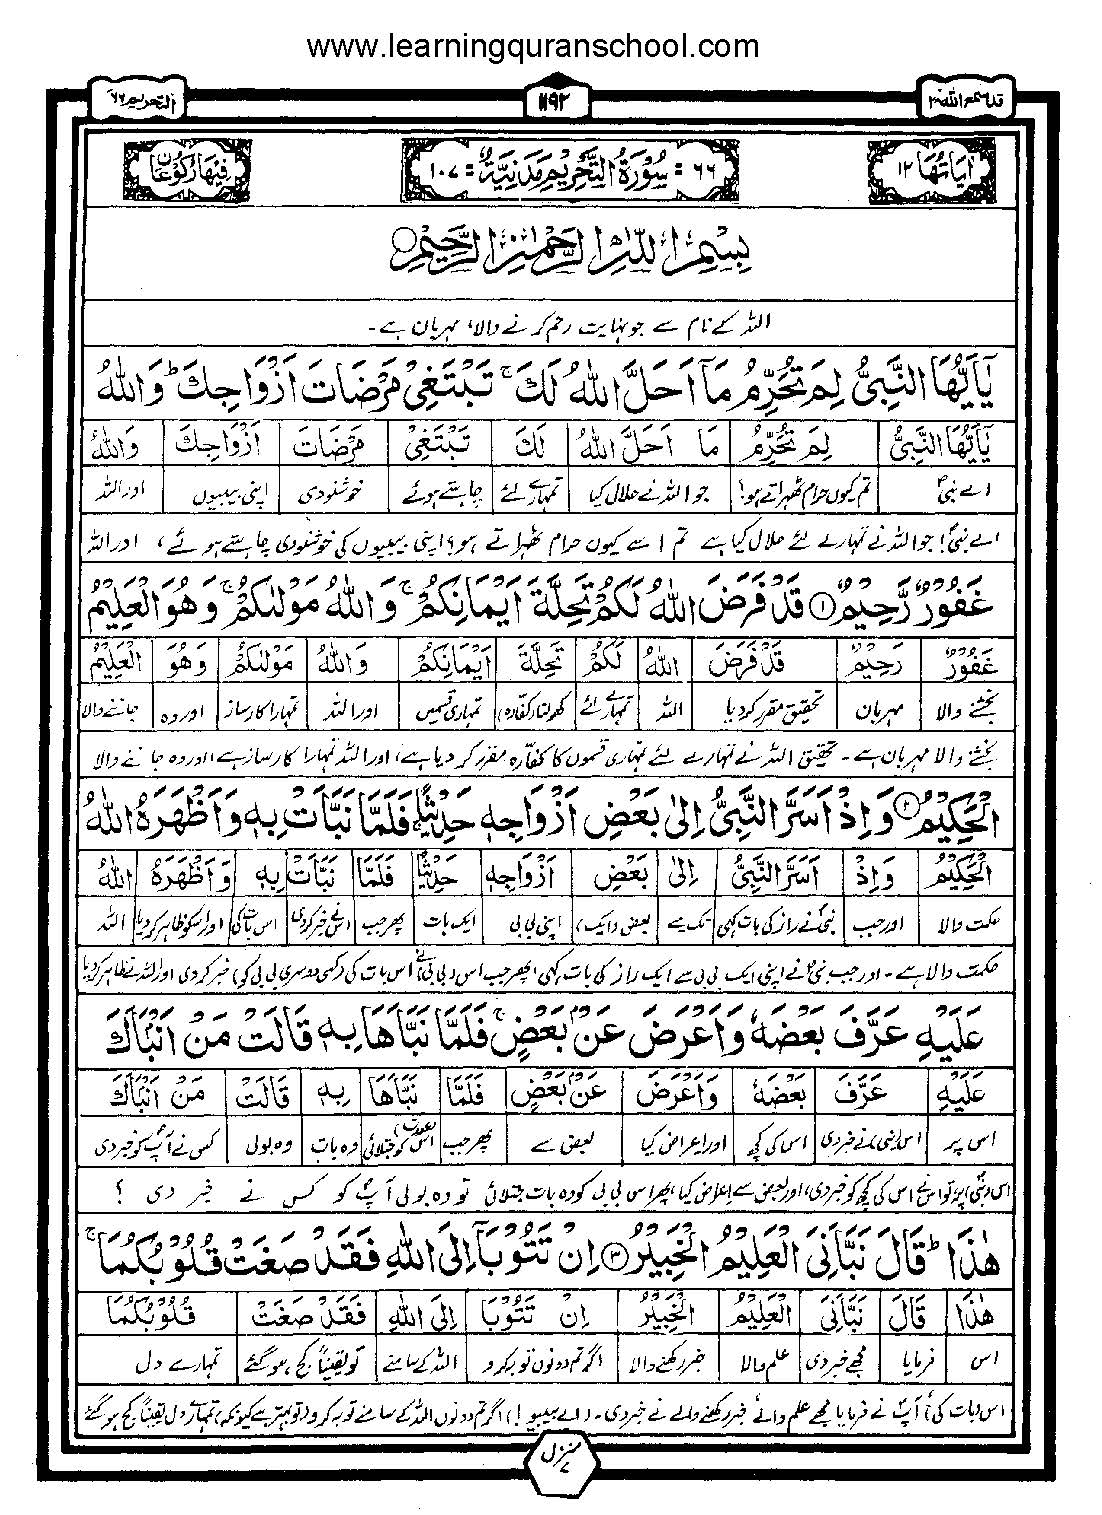 www.learningquranschool.com
قد سمع اللہ ٢٨ ١١٩٢ التحریم ٦٦
اٰیَاتُهَا ١٢ ٦٦ = سُوْرَةُ التَّحْرِیْمِ مَدَنِیَّةٌ = ١٠٧ رُكُوْعَاتُهَا
بِسْمِ اللّٰهِ الرَّحْمٰنِ الرَّحِیْمِ
اللہ کے نام سے جو نہایت رحم کرنے والا، مہربان ہے۔
یٰۤاَیُّهَا النَّبِیُّ لِمَ تُحَرِّمُ مَاۤ اَحَلَّ اللّٰهُ لَكَ ۚ تَبْتَغِیْ مَرْضَاتَ اَزْوَاجِكَ ؕ وَاللّٰهُ
یٰۤاَیُّهَا النَّبِیُّ لِمَ تُحَرِّمُ مَا اَحَلَّ اللّٰهُ لَكَ تَبْتَغِیْ مَرْضَاتَ اَزْوَاجِكَ وَاللّٰهُ
اے نبیؐ تم کیوں حرام ٹھہراتے ہو؟ جو اللہ نے حلال کیا تمہارے لئے چاہتے ہوئے خوشنودی اپنی بیبیوں اور اللہ
اے نبیؐ! جو اللہ نے تمہارے لئے حلال کیا ہے تم اسے کیوں حرام ٹھہراتے ہو؟ اپنی بیبیوں کی خوشنودی چاہتے ہوئے، اور اللہ
غَفُوْرٌ رَّحِیْمٌ ١ قَدْ فَرَضَ اللّٰهُ لَكُمْ تَحِلَّةَ اَیْمَانِكُمْ ۚ وَاللّٰهُ مَوْلٰىكُمْ ۚ وَهُوَ الْعَلِیْمُ
غَفُوْرٌ رَحِیْمٌ قَدْ فَرَضَ اللّٰهُ لَكُمْ تَحِلَّةَ اَیْمَانِكُمْ وَاللّٰهُ مَوْلٰىكُمْ وَهُوَ الْعَلِیْمُ
بخشنے والا مہربان تحقیق مقرر کردیا اللہ تمہارے لئے کھولنا (کفارہ) تمہاری قسمیں اور اللہ تمہارا کارساز اور وہ جاننے والا
بخشنے والا مہربان ہے۔ تحقیق اللہ نے تمہارے لئے تمہاری قسموں کا کفارہ مقرر کر دیا ہے، اور اللہ تمہارا کارساز ہے، اور وہ جاننے والا
الْحَكِیْمُ ٢ وَاِذْ اَسَرَّ النَّبِیُّ اِلٰى بَعْضِ اَزْوَاجِهٖ حَدِیْثًا ۚ فَلَمَّا نَبَّاَتْ بِهٖ وَاَظْهَرَهُ اللّٰهُ
الْحَكِیْمُ وَاِذْ اَسَرَّ النَّبِیُّ اِلٰى بَعْضِ اَزْوَاجِهٖ حَدِیْثًا فَلَمَّا نَبَّاَتْ بِهٖ وَاَظْهَرَهُ اللّٰهُ
حکمت والا اور جب نبیؐ نے راز کی بات کہی تک سے بعض (ایک) اپنی بی بی ایک بات پھر جب اس نے خبر کردی اس بات کی اور اسکو ظاہر کردیا اللہ
حکمت والا ہے۔ اور جب نبیؐ نے اپنی ایک بی بی سے ایک راز کی بات کہی، پھر جب اس (بی بی) نے اس بات کی (کسی دوسری بی بی کو) خبر کر دی اور اللہ نے ظاہر کردیا
عَلَیْهِ عَرَّفَ بَعْضَهٗ وَاَعْرَضَ عَنْۢ بَعْضٍ ۚ فَلَمَّا نَبَّاَهَا بِهٖ قَالَتْ مَنْ اَنْۢبَاَكَ
عَلَیْهِ عَرَّفَ بَعْضَهٗ وَاَعْرَضَ عَنْۢ بَعْضٍ فَلَمَّا نَبَّاَهَا بِهٖ قَالَتْ مَنْ اَنْۢبَاَكَ
اس پر اس (نبی) نے خبر دی اس کی کچھ اور اعراض کیا بعض سے پھر جب اس (عورت) کو جتلائی وہ بات وہ بولی کس نے آپؐ کو خبر دی
اس (نبیؐ) پر تو اس نے اس کی کچھ کو خبر دی، اور بعض سے اعراض کیا، پھر اس بی بی کو وہ بات جتلائی تو وہ بولی آپؐ کو کس نے خبر دی ؟
هٰذَا ؕ قَالَ نَبَّاَنِیَ الْعَلِیْمُ الْخَبِیْرُ ٣ اِنْ تَتُوْبَاۤ اِلَى اللّٰهِ فَقَدْ صَغَتْ قُلُوْبُكُمَا ۚ
هٰذَا قَالَ نَبَّاَنِیَ الْعَلِیْمُ الْخَبِیْرُ اِنْ تَتُوْبَا اِلَى اللّٰهِ فَقَدْ صَغَتْ قُلُوْبُكُمَا
اس فرمایا مجھے خبر دی علم والا خبر رکھنے والا اگر تم دونوں توبہ کرو اللہ کے سامنے تو یقیناً کج ہوگئے تمہارے دل
اس (بات کی)؟ آپؐ نے فرمایا مجھے علم والے، خبر رکھنے والے نے خبر دی۔ (اے بیبیو!) اگر تم دونوں اللہ کے سامنے توبہ کرو (تو بہتر ہے کیونکہ) تمہارے دل یقیناً کج ہوگئے
منزل ٧